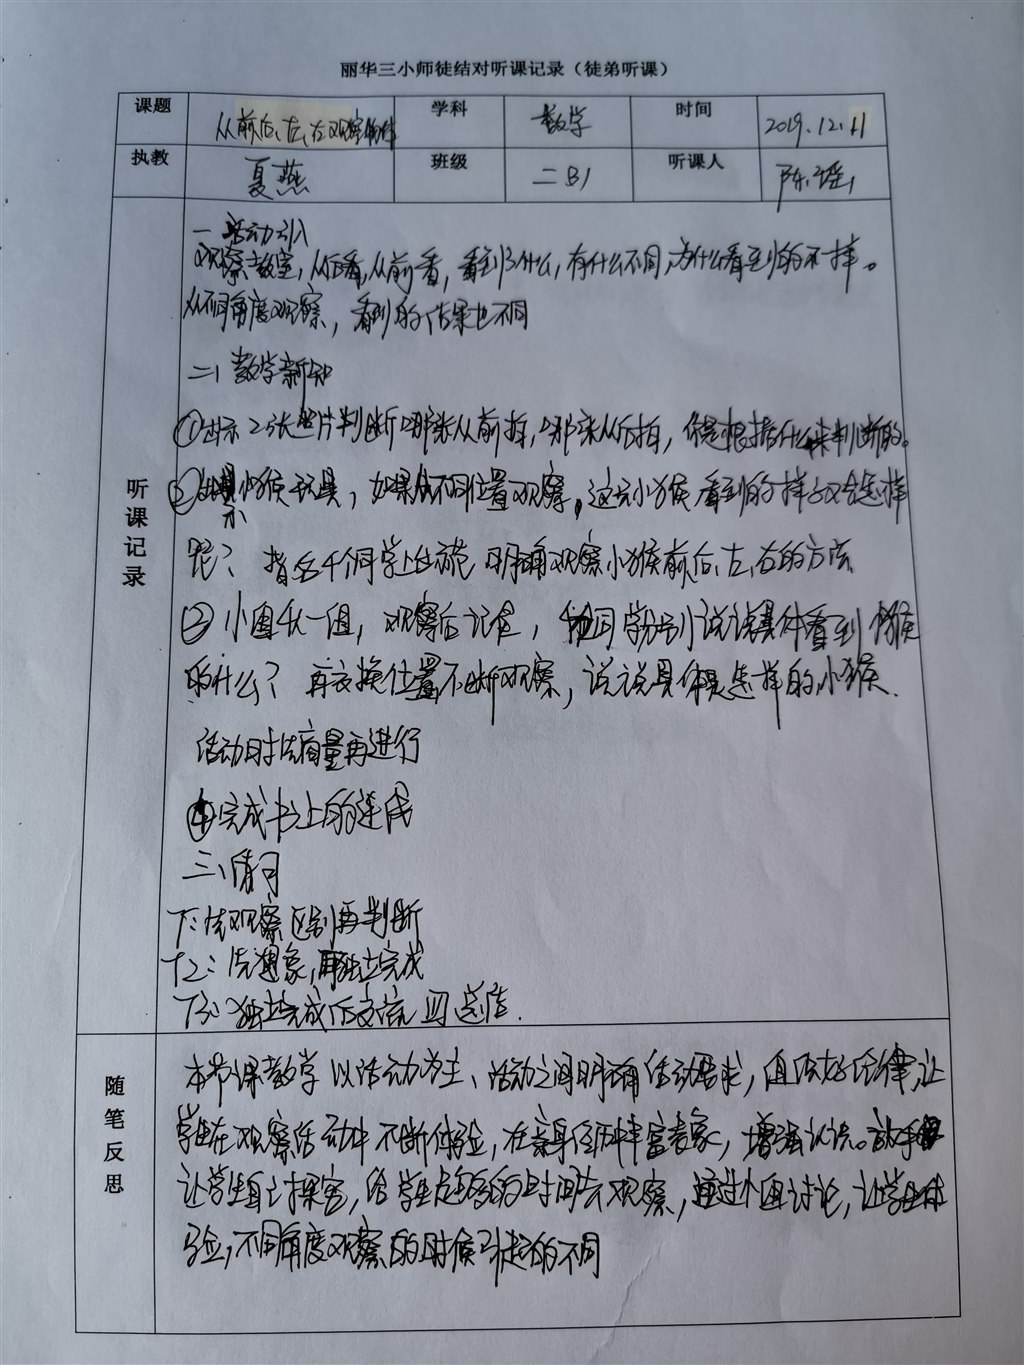 丽华三小师徒结对听课记录（徒弟听课）
课题 从前、后、左、右观察物体 学科 数学 时间 2019.12.11
执教 夏燕 班级 二B1 听课人 陈瑶
听课记录
一 活动引入
观察教室，从后看，从前看，看到了什么，有什么不同，为什么看到的不一样。
从不同角度观察，看到的结果也不同
二、教学新知
①出示2张照片判断哪张从前拍，哪张从后拍，你是根据什么来判断的。
②出示小猴玩具，如果从不同位置观察，这只小猴看到的样子又会怎样
呢？ 指名4个同学上台示范 明确观察小猴前、后、左、右的方法
③ 小组4人一组，观察后记住， 和同学分别说说具体看到小猴
的什么？ 再交换位置不断观察，说说具体是怎样的小猴.
活动时先商量再进行
④完成书上的连线
三、练习
T1：先观察区别再判断
T2：先想象，再独立完成
T3：独立完成后交流 四 总结.
随笔反思
本节课教学以活动为主、活动之间明确活动要求，组织好纪律，让
学生在观察活动中不断体验，在亲身经历中丰富表象，增强认识。放手
让学生自主探究，给学生足够多的时间去观察，通过小组讨论，让学生体
验，不同角度观察的时候引起的不同